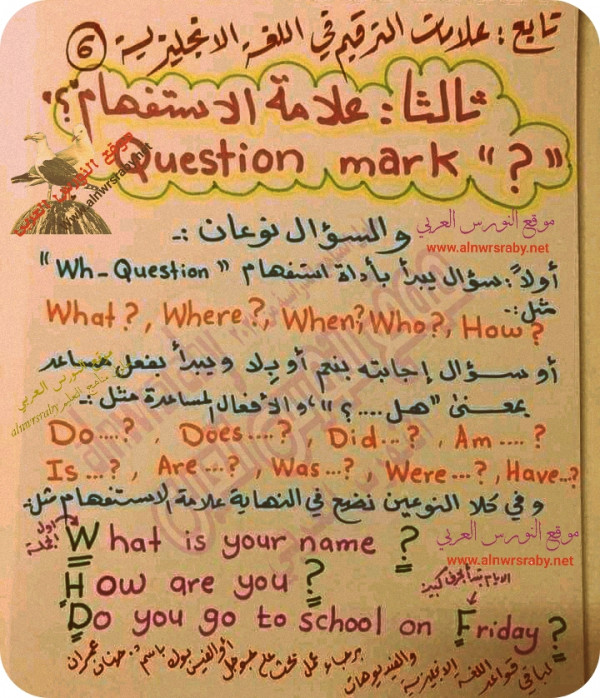 تابع: علامات الترقيم في اللغة الانجليزية 6
ثالثا: علامة الاستفهام "؟"
Question mark "?"
موقع النورس العربي
www.alnwrsraby.net
موقع النورس العربي
www.alnwrsraby.net
والسؤال نوعان :-
أولاً: سؤال يبدأ بأداة استفهام "Wh-Question"
مثل:-
What?, Where?, When?, Who?, How?
أو سؤال إجابته بنعم أو بلا ويبدأ بفعل مساعد
بمعنى "هل....؟"، والأفعال المساعدة مثل :-
موقع النورس العربي
alnwrsraby
Do....?, Does....?, Did...?, Am....?
Is...?, Are...?, Was...?, Were...?, Have...?
وفي كلا النوعين نضع في النهاية علامة الاستفهام مثل:
موقع النورس العربي
www.alnwrsraby.net
أول الجملة
What is your name ?
How are you ?
الايام تبدأ بحرف كبير
Do you go to school on Friday ?
لباقي قواعد اللغة الانجليزية والفيديوهات برجاء عمل بحث على جوجل أو الفيس بوك باسم: جهان عمران